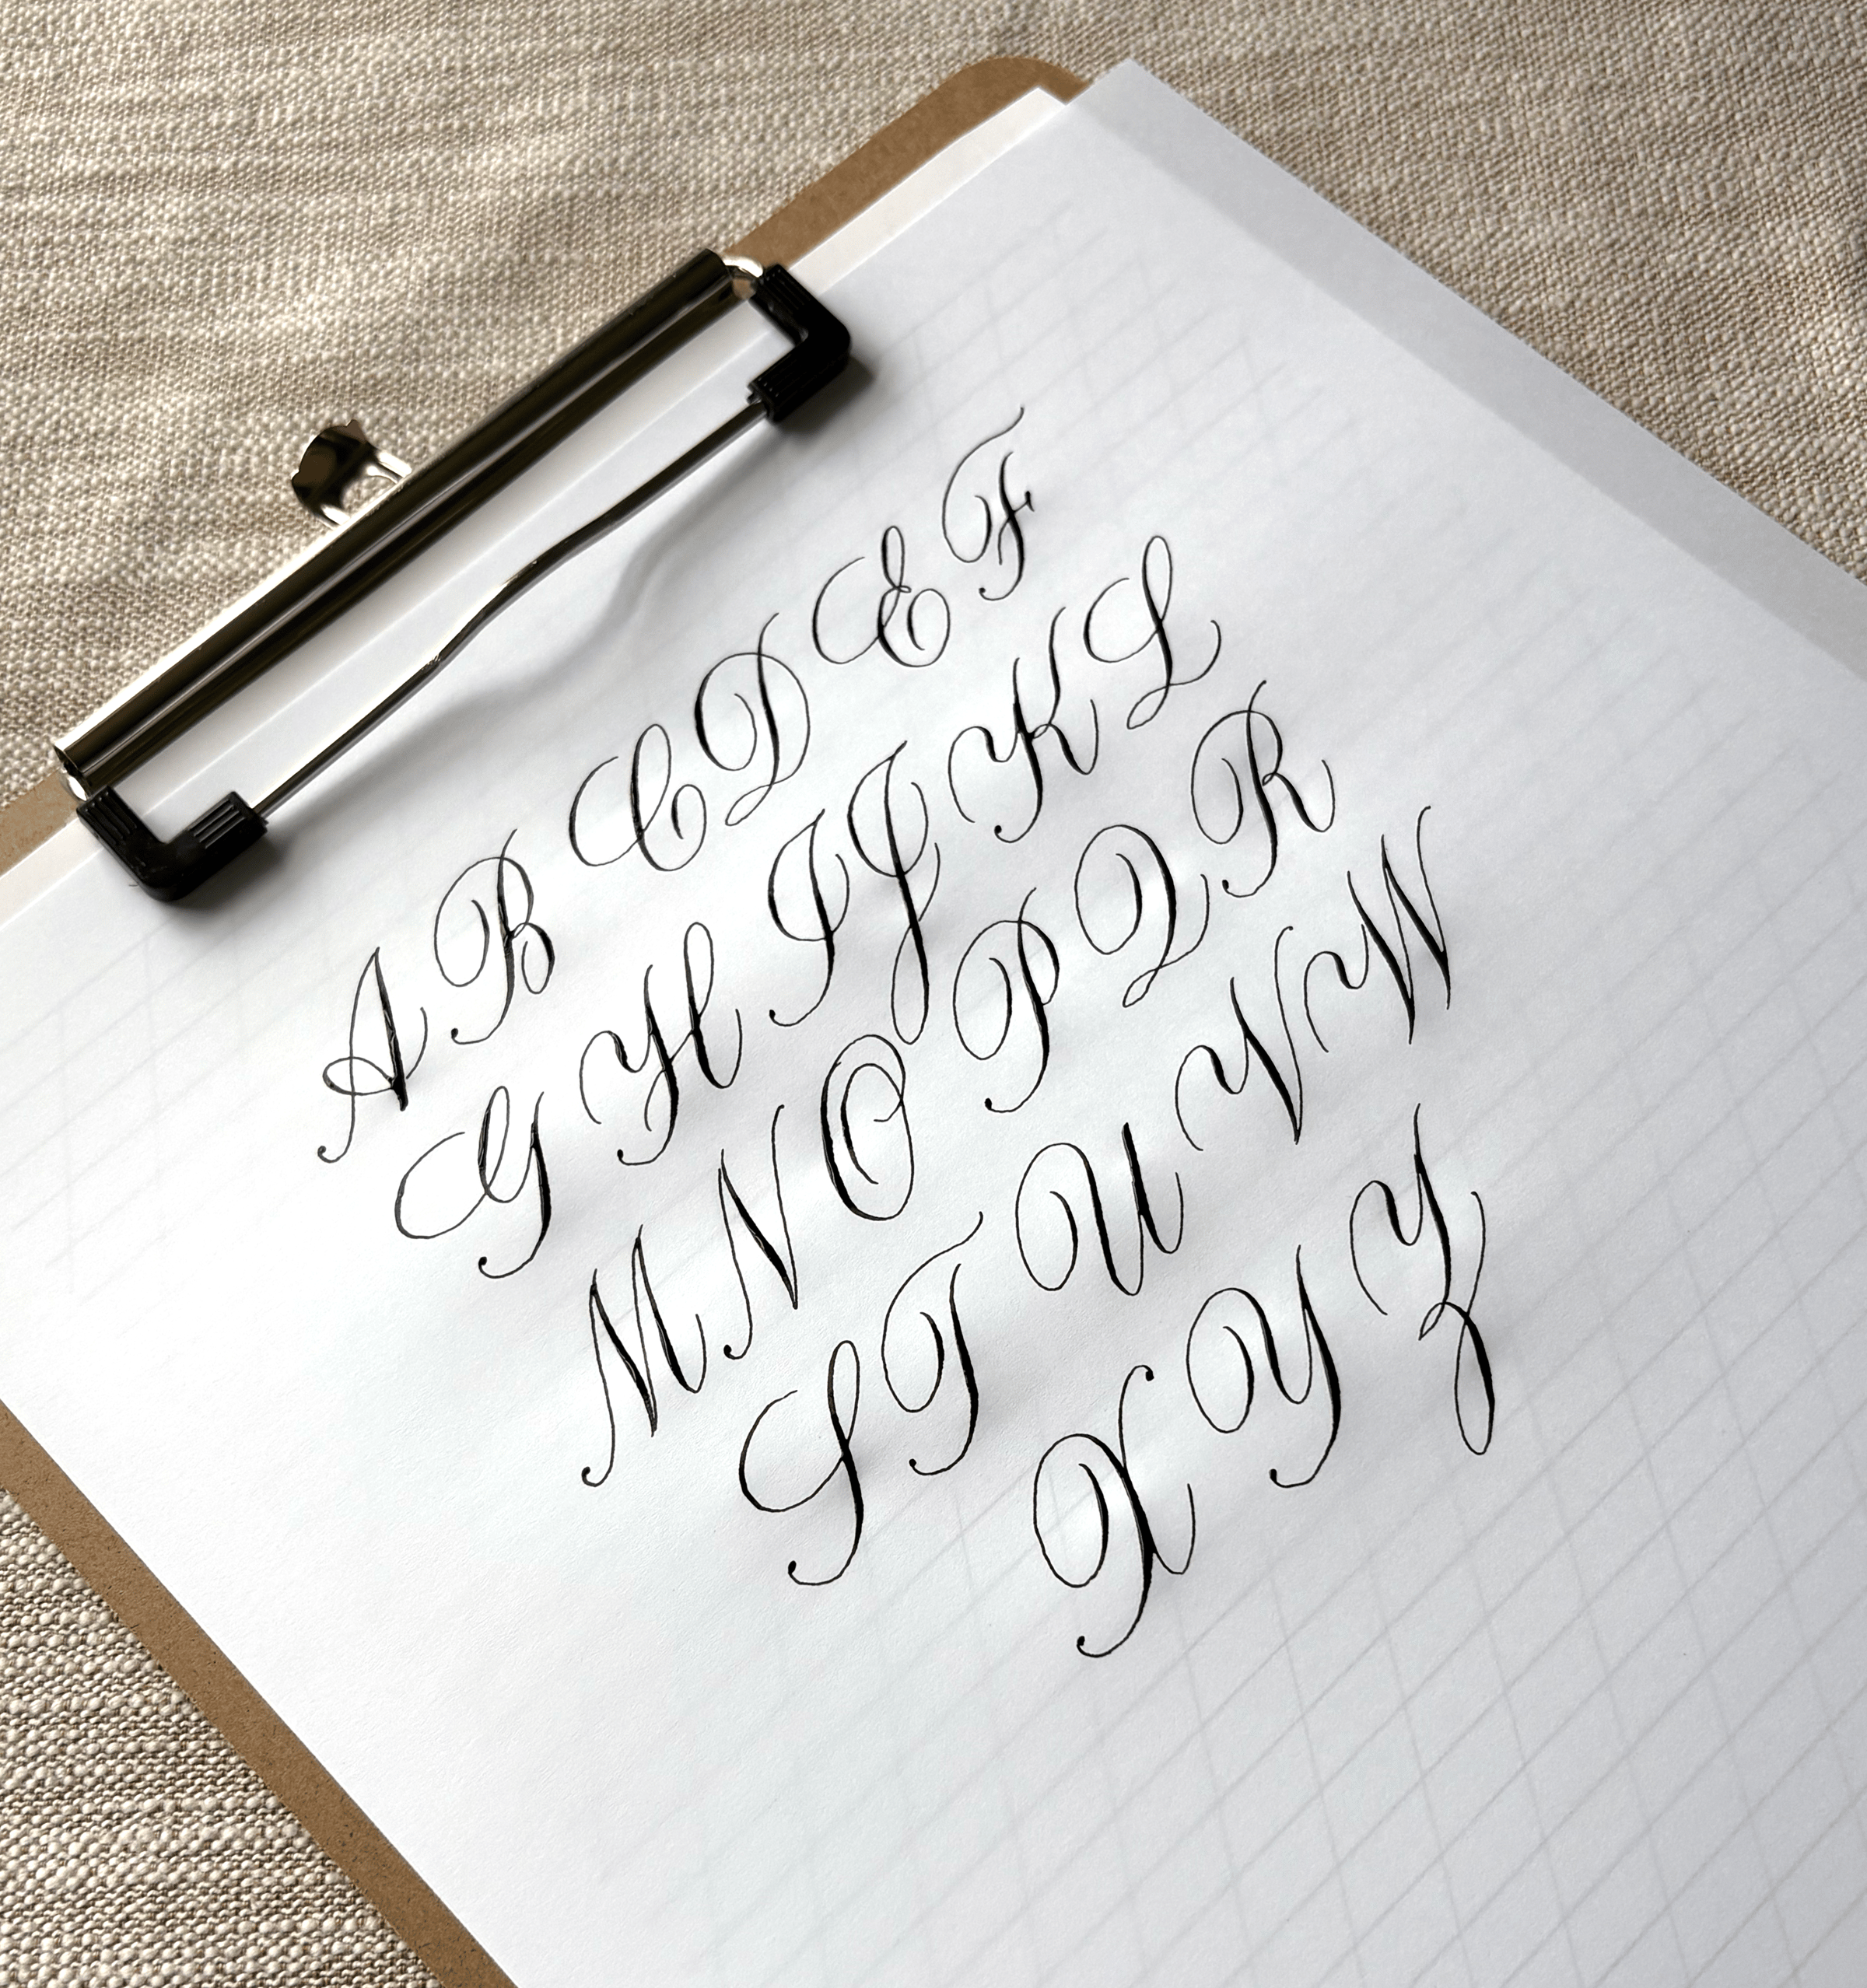 A B C D E F
G H I J K L
M N O P Q R
S T U V W
X Y Z